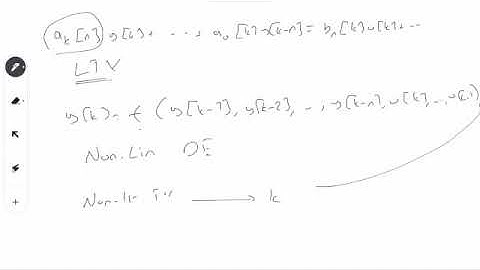 a_k[n] y[k] + ..., + a_0[k] y[k-n] = b_n[k] u[k] + ...
LTV
y[k] = f (y[k-1], y[k-2], .., y[k-n], u[k], .., u[..])
Non.Lin DE
Non-li TV → k